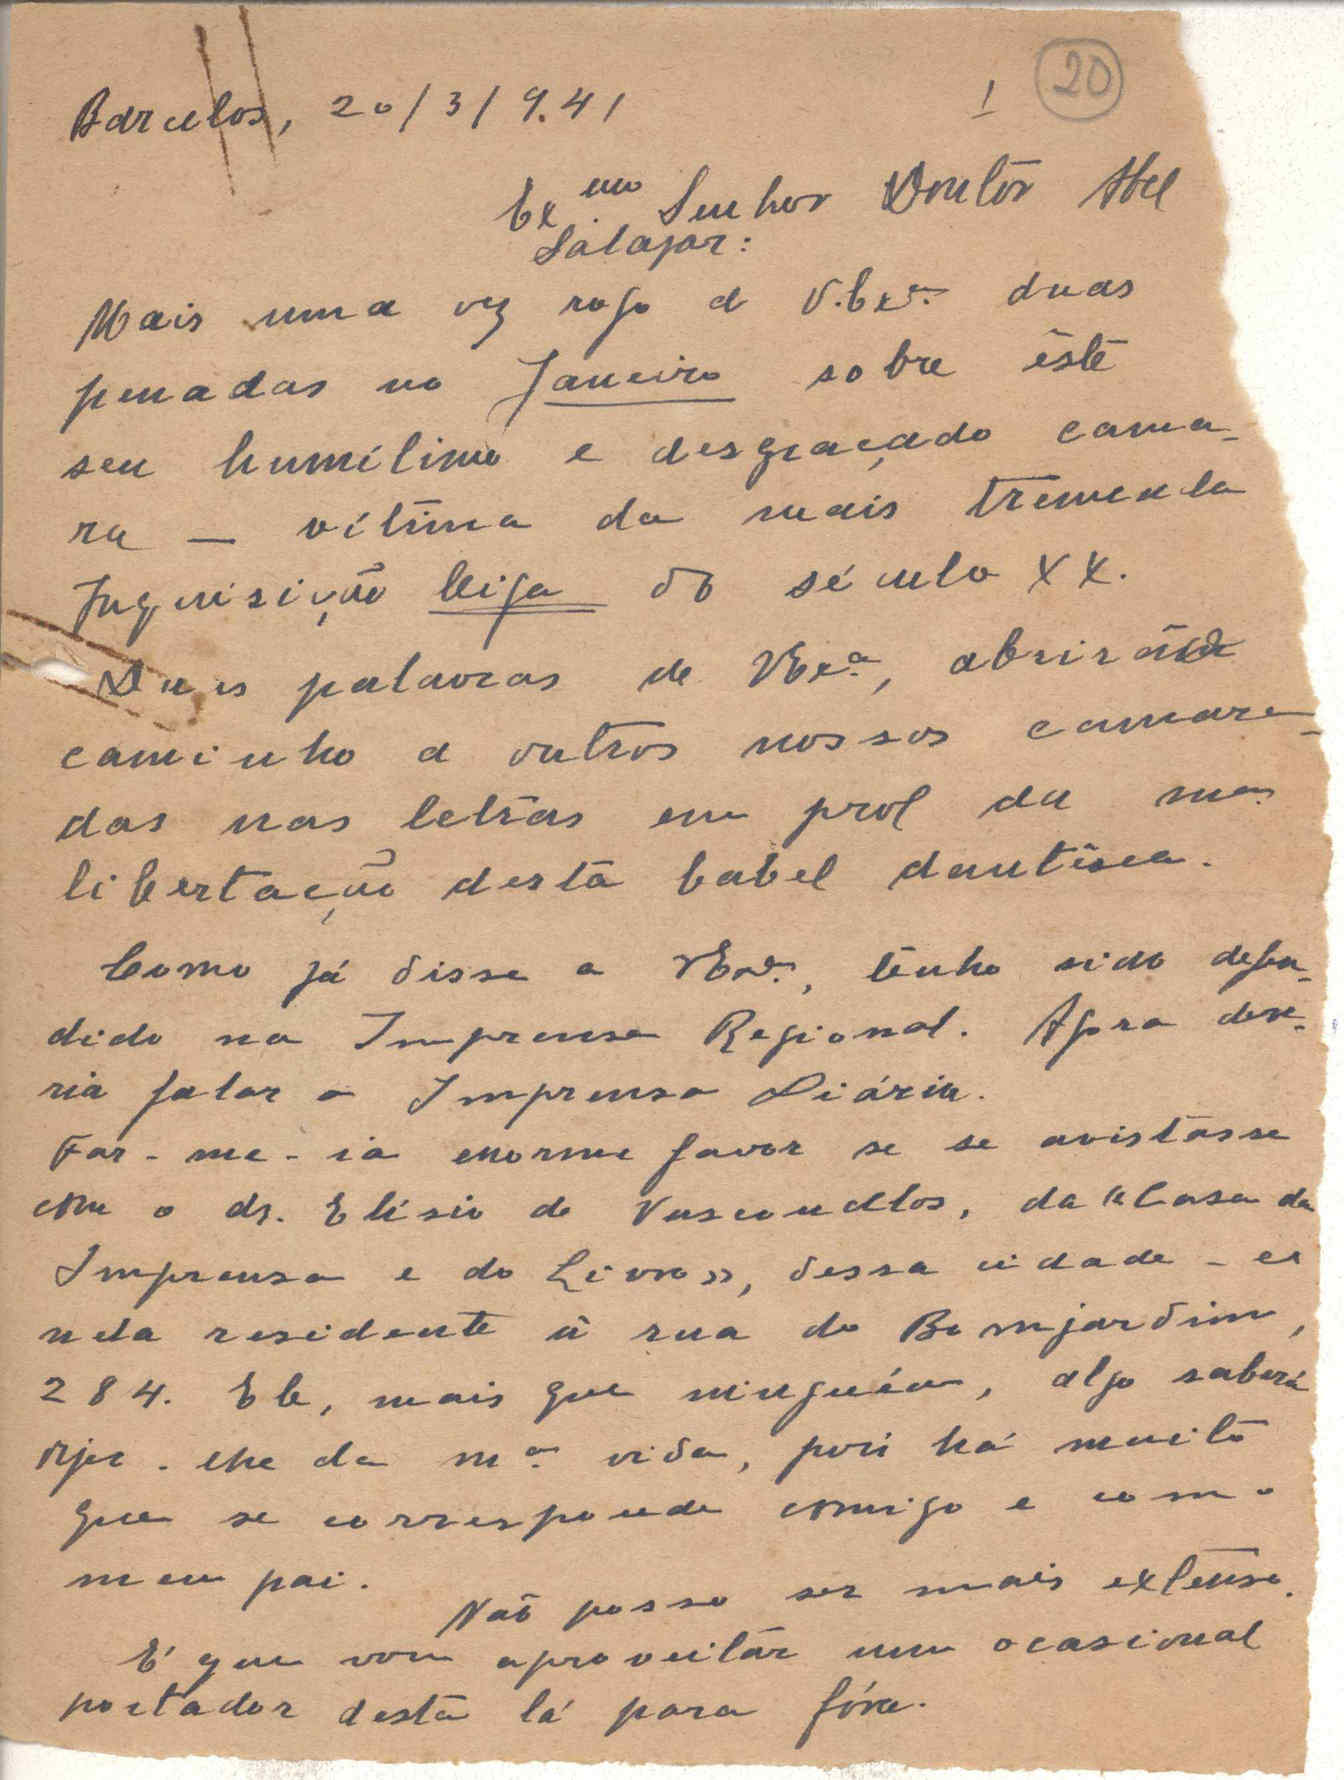 Barcelos, 20/3/941
1 20
Ex.mo Senhor Doutôr Abel
Salazar:
Mais uma vez rogo a V.Exª. duas
penadas no Janeiro sobre êste
seu humílimo e desgraçado cama-
ra — vítima da mais tremenda
Inquisição leiga do século XX.
Duas palavras de VExª, abrirão
caminho a outros nossos camara-
das nas letras em prol da mª
libertação desta babel dantêsca.
Como já disse a VExª., tenho sido defen-
dido na Imprensa Regional. Agora deve-
ria falar a Imprensa Diária.
Far-me-ia enorme favor se se avistasse
com o dr. Elísio de Vasconcellos, da «Casa da
Imprensa e do Livro», dessa cidade - e
nela residente à rua do Bomjardim,
284. Ele, mais que ninguém, algo saberá
dizer-lhe da mª vida, pois há muito
que se corresponde comigo e com o
meu pai.
Não posso ser mais extenso.
É que vou aproveitar um ocasional
portador desta lá para fóra.